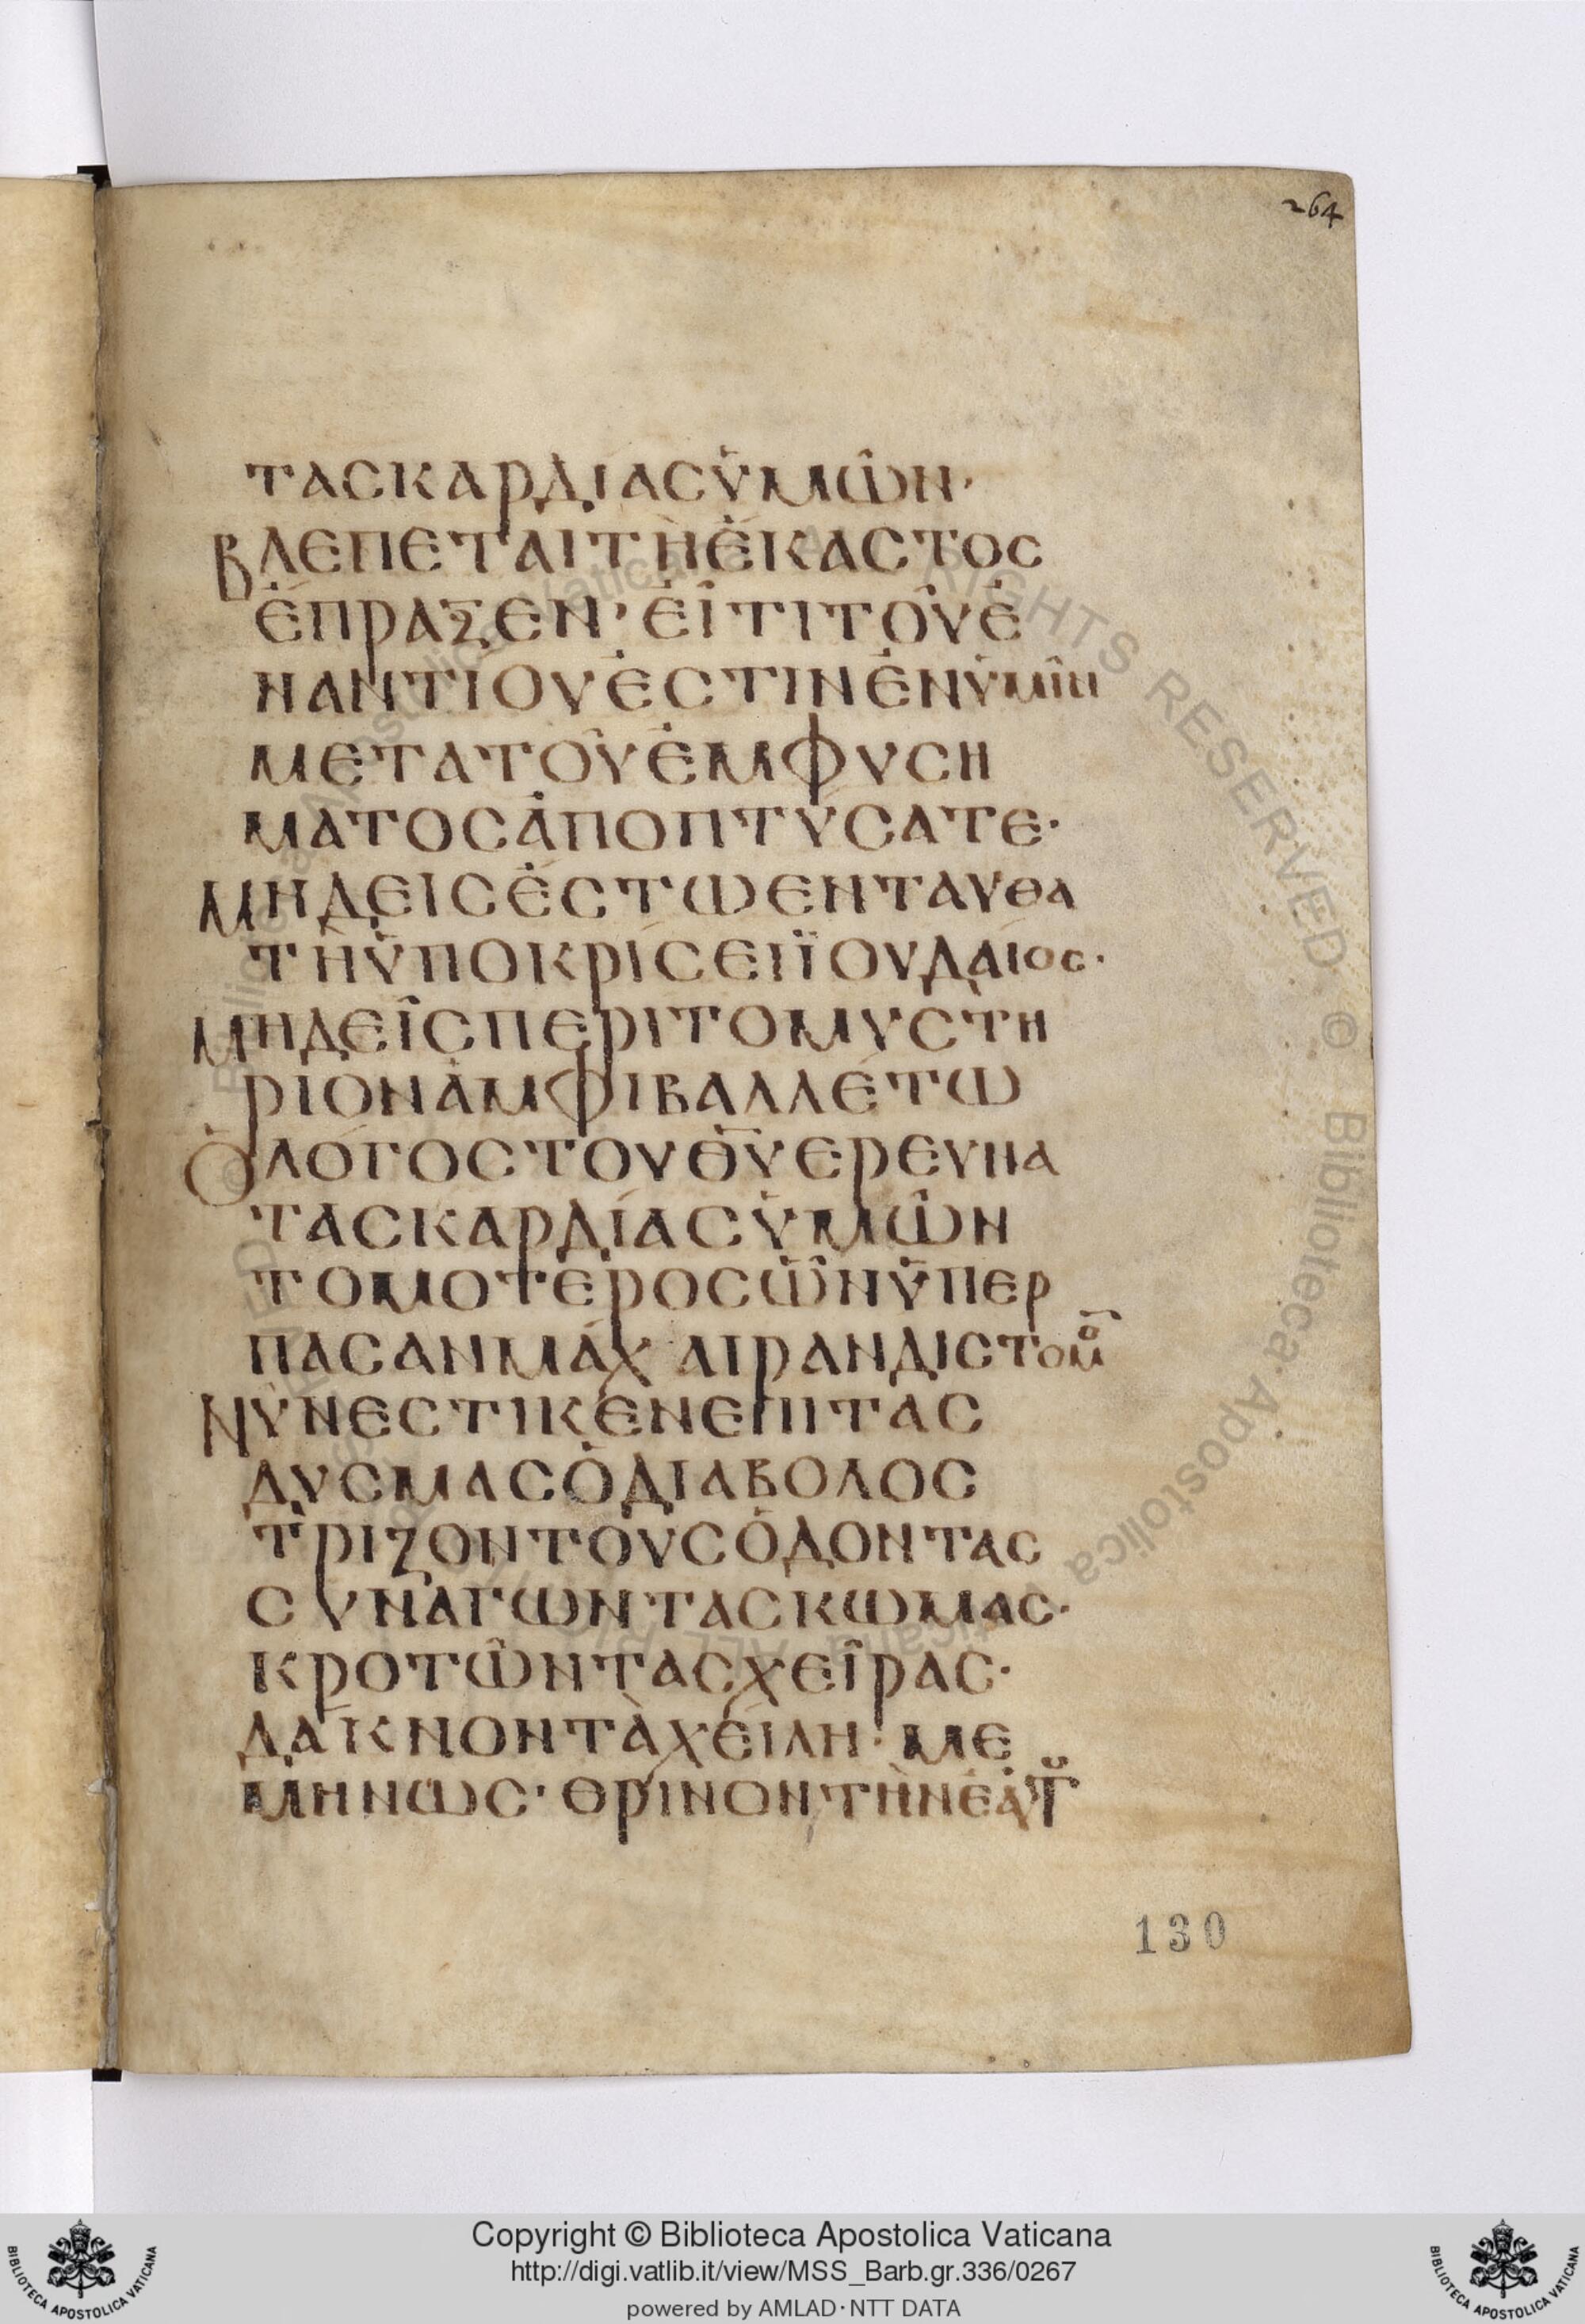 264
ΤΑΣΚΑΡΔΙΑΣΥ̓ΜῶΝ·
ΒΛΕΠΕΤΑΙΤῊἙΚΑΣΤΟΣ
ἘΠΡΑΞΕΝ· ἘΙΤΙΤΟΥ͂Ἐ
ΝΑΝΤΙΟΥἘΣΤΙΝἘΝὙΜῖΝ
ΜΕΤΑΤΟΥ͂ἘΜΦΥΣΗ
ΜΑΤΟΣἈΠΟΠΤΥΣΑΤΕ·
ΜΗΔΕΙΣἘΣΤΩΕΝΤΑΥΘΑ
ΤῊὙΠΟΚΡΙΣΕΙΪΟΥΔΑΙΟΣ·
ΜΗΔΕῖΣΠΕΡΙΤΟΜΥΣΤΗ
ΡΙΟΝἈΜΦΙΒΑΛΛΈΤΩ
ὉΛΌΓΟΣΤΟΥΘ̅Υ̅ΕΡΕΥΝΑ
ΤΑΣΚΑΡΔΊΑΣὙΜῶΝ
ΤΟΜΟΤΕΡΟΣὮΝὙΠΕΡ
ΠΑΣΑΝΜΆΧΑΙΡΑΝΔΙΣΤΟΜΟ̅
ΝΥ͂ΝΕΣΤΙΚΕΝΕΠΙΤΑΣ
ΔΥΣΜΑΣὉΔΙΑΒΟΛΟΣ
ΤΡΙΖΟΝΤΟῪΣὈΔΟΝΤΑΣ
ΣΥΝΑΓΩΝΤΑΣΚΩΜΑΣ·
ΚΡΟΤῶΝΤΑΣΧΕῖΡΑΣ·
ΔΆΚΝΟΝΤᾺΧΈΙΛΗ· ΜΕ
ΜΗΝΩΣ· ΘΡΙΝΟΝΤῊΝἙΑΥΤΟΥ
130
Copyright © Biblioteca Apostolica Vaticana
http://digi.vatlib.it/view/MSS_Barb.gr.336/0267
powered by AMLAD·NTT DATA
BIBLIOTECA APOSTOLICA VATICANA
BIBLIOTECA APOSTOLICA VATICANA